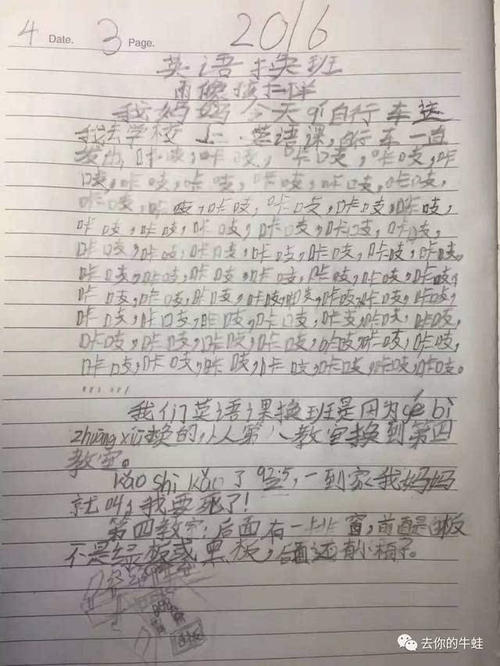 4 Date. 3 Page. 2016
英语换班
我妈妈今天qí自行车送
我去学校上英语课,自行车一直
发出,咔吱,咔吱,咔吱,咔吱,咔
吱,咔吱,咔吱,咔吱,咔吱,咔吱,
咔吱,咔吱,咔吱,咔吱,咔吱,咔吱,
咔吱,咔吱,咔吱,咔吱,咔吱,咔吱,
咔吱,咔吱,咔吱,咔吱,咔吱,咔吱,咔吱。
咔吱,咔吱,咔吱,咔吱,咔吱,咔吱,咔吱,
咔吱,咔吱,咔吱,咔吱,咔吱,咔吱,咔吱,
咔吱,咔吱,咔吱,咔吱,咔吱,咔吱,
咔吱,咔吱,咔吱,咔吱,咔吱,咔吱,咔吱,
咔吱,咔吱,咔吱,咔吱,咔吱,咔吱。
……
我们英语课换班是因为gé bì
zhuāng xiū换的,从第八教室换到第四
教室。
kǎo shì kǎo了92.5,一到家我妈妈
就叫,我要死了!
第四教室:后面有一排窗,前面是白板
不是绿板或黑板,后面还有小箱子。
去你的牛蛙